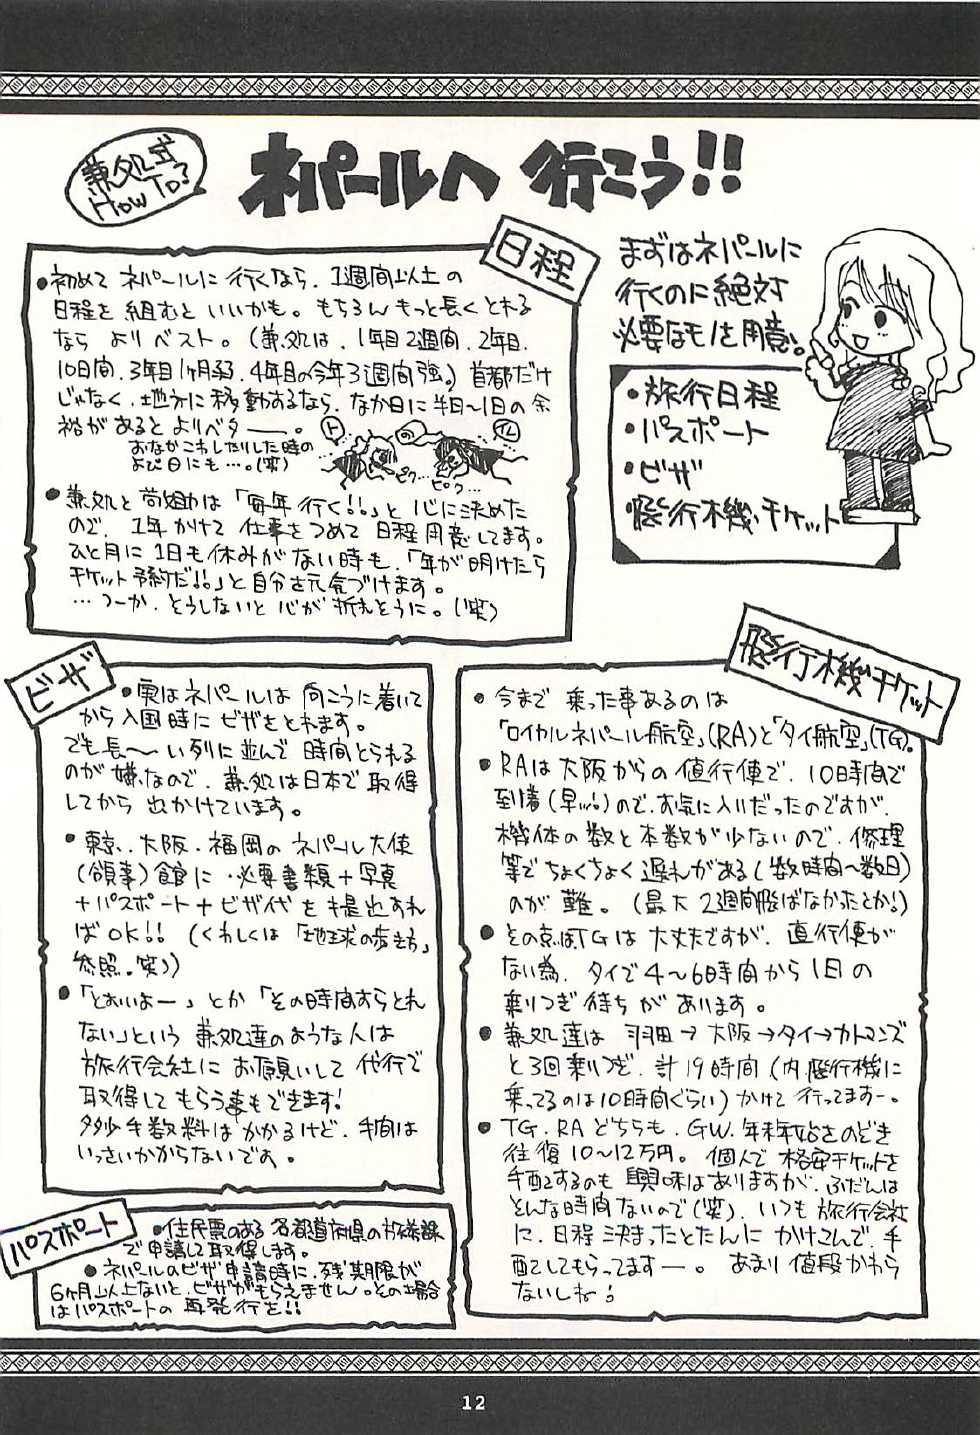 兼処式
How To?
ネパールへ 行こう!!
まずはネパールに
行くのに絶対
必要なモノを用意。
・旅行日程
・パスポート
・ビザ
・飛行機チケット
日程
●初めて ネパールに 行くなら、1週間以上の
日程を 組むと いいかも。もちろん もっと長く とれる
なら より ベスト。(兼処は、1年目2週間、2年目、
10日間、3年目1ヶ月弱、4年目の今年3週間強。) 首都だけ
じゃなく、地方に移動するなら、なか日に半日〜1日の余
裕があると よりベター。
おなかこわしたりした時の
よび日にも…。(笑)
ト
の
イレ
ピク…ピク…
●兼処と 苛娘は「毎年 行く!!」と 心に決めた
ので、1年かけて 仕事をつめて 日程 用意してます。
ひと月に 1日も 休みが ない時も、「年が 明けたら
チケット 予約だ!!」と 自分を元気づけます。
…つーか、そうしないと 心が 折れそうに。(笑)
ビザ
●実はネパールは 向こうに着いて
から入国時に ビザをとれます。
でも長〜い列に並んで 時間とられる
のが 嫌なので、兼処は日本で取得
してから 出かけています。
●東京、大阪、福岡の ネパール大使
(領事)館に、必要書類+写真
+パスポート+ビザ代 を提出すれ
ばOK!! (くわしくは「地球の歩き方」
参照。笑))
●「とおいよー」とか「その時間すらとれ
ない」という 兼処達のような人は
旅行会社に お願いして 代行で
取得して もらう事もできます!
多少手数料は かかるけど、手間は
いっさいかからないです。
パスポート
●住民票のある 各都道府県の旅券課
で申請して取得します。
●ネパールのビザ申請時に、残期限が
6ヶ月以上ないと、ビザがもらえません。その場合
はパスポートの 再発行を!!
飛行機チケット
●今まで 乗った事あるのは
「ロイヤルネパール航空」(RA)と「タイ航空」(TG)。
●RAは大阪からの 直行便で、10時間で
到着(早ッ!)ので、お気に入りだったのですが、
機体の数と本数が少ないので、修理
等で ちょくちょく 遅れがある(数時間〜数日)
のが 難。(最大 2週間飛ばなかったとか!)
●その点はTGは 大丈夫ですが、直行便が
ない為、タイで 4〜6時間から 1日の
乗りつぎ 待ちが あります。
●兼処達は 羽田→大阪→タイ→カトマンズ
と3回乗りつぎ、計19時間(内、飛行機に
乗ってるのは10時間ぐらい) かけて 行ってますー。
●TG、RAどちらも、GW、年末年始さのどき
往復10〜12万円。個人で 格安チケットを
手配するのも 興味はありますが、ふだんは
そんな時間ないので(笑)、いつも 旅行会社
に、日程 決まったとたんに かけこんで、手
配してもらってますー。あまり値段かわら
ないしね!
12